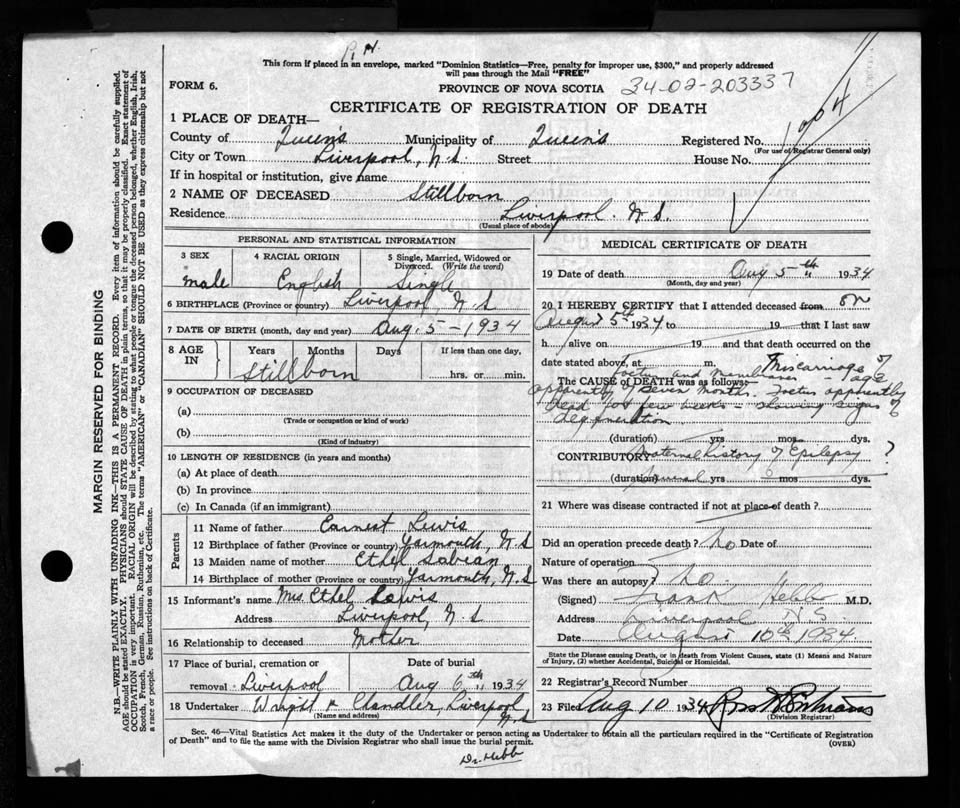 P. H.
This form if placed in an envelope, marked "Dominion Statistics—Free, penalty for improper use, $300," and properly addressed
will pass through the Mail "FREE"
FORM 6.
PROVINCE OF NOVA SCOTIA
34-02-203337
CERTIFICATE OF REGISTRATION OF DEATH
1 PLACE OF DEATH—
County of Queen's Municipality of Queen's Registered No.
(For use of Registrar General only)
City or Town Liverpool, N.S. Street House No.
If in hospital or institution, give name
2 NAME OF DECEASED Stillborn
Residence Liverpool. N.S.
(Usual place of abode)
PERSONAL AND STATISTICAL INFORMATION
3 SEX 4 RACIAL ORIGIN 5 Single, Married, Widowed or
Divorced. (Write the word)
male English Single
6 BIRTHPLACE (Province or country) Liverpool, N.S
7 DATE OF BIRTH (month, day and year) Aug. 5 - 1934
8 AGE IN Years Months Days If less than one day.
Stillborn hrs. or min.
9 OCCUPATION OF DECEASED
(a)
(Trade or occupation or kind of work)
(b)
(Kind of industry)
10 LENGTH OF RESIDENCE (in years and months)
(a) At place of death
(b) In province
(c) In Canada (if an immigrant)
Parents
11 Name of father Earnest Lewis
12 Birthplace of father (Province or country) Yarmouth, N.S
13 Maiden name of mother Ethel
14 Birthplace of mother (Province or country) Yarmouth, N.S
15 Informant's name Mrs. Ethel Lewis
Address Liverpool, N.S
16 Relationship to deceased Mother
17 Place of burial, cremation or Date of burial
removal Liverpool Aug 6th 1934
18 Undertaker Wright & Chandler, Liverpool, N.S
(Name and address)
MEDICAL CERTIFICATE OF DEATH
19 Date of death Aug 5th 1934
(Month, day and year)
20 I HEREBY CERTIFY that I attended deceased from on
August 5th 1934 to 19 that I last saw
h alive on 19 and that death occurred on the
date stated above, at m. Miscarriage of
foetus and membranes age
The CAUSE OF DEATH was as follows:
apparently seven months. Foetus apparently
dead for few weeks - showing signs of
degeneration.
(duration) yrs mos. dys.
CONTRIBUTORY history of Epilepsy ?
(duration) yrs mos dys.
21 Where was disease contracted if not at place of death?
Did an operation precede death? No Date of
Nature of operation
Was there an autopsy? No.
(Signed) Frank Hebb M.D.
Address Liverpool N S
Date August 10th 1934.
State the Disease causing Death, or in death from Violent Causes, state (1) Means and Nature
of Injury, (2) whether Accidental, Suicidal or Homicidal.
22 Registrar's Record Number
23 Filed Aug 10 1934
(Division Registrar)
Sec. 46—Vital Statistics Act makes it the duty of the Undertaker or person acting as Undertaker to obtain all the particulars required in the "Certificate of Registration
of Death" and to file the same with the Division Registrar who shall issue the burial permit.
(OVER)
Dr. Hebb
MARGIN RESERVED FOR BINDING
N.B.—WRITE PLAINLY WITH UNFADING INK—THIS IS A PERMANENT RECORD. Every item of information should be carefully supplied.
AGE should be stated EXACTLY. PHYSICIANS should STATE CAUSE OF DEATH in plain terms, so that it may be properly classified. Exact statement of
OCCUPATION is very important. RACIAL ORIGIN will be described by stating to what people or tongue the deceased person belonged, whether English, Irish,
Scotch, French, German, Russian, Ruthenian, etc. The terms "AMERICAN" or "CANADIAN" SHOULD NOT BE USED as they express citizenship but not
a race or people. See instructions on back of Certificate.